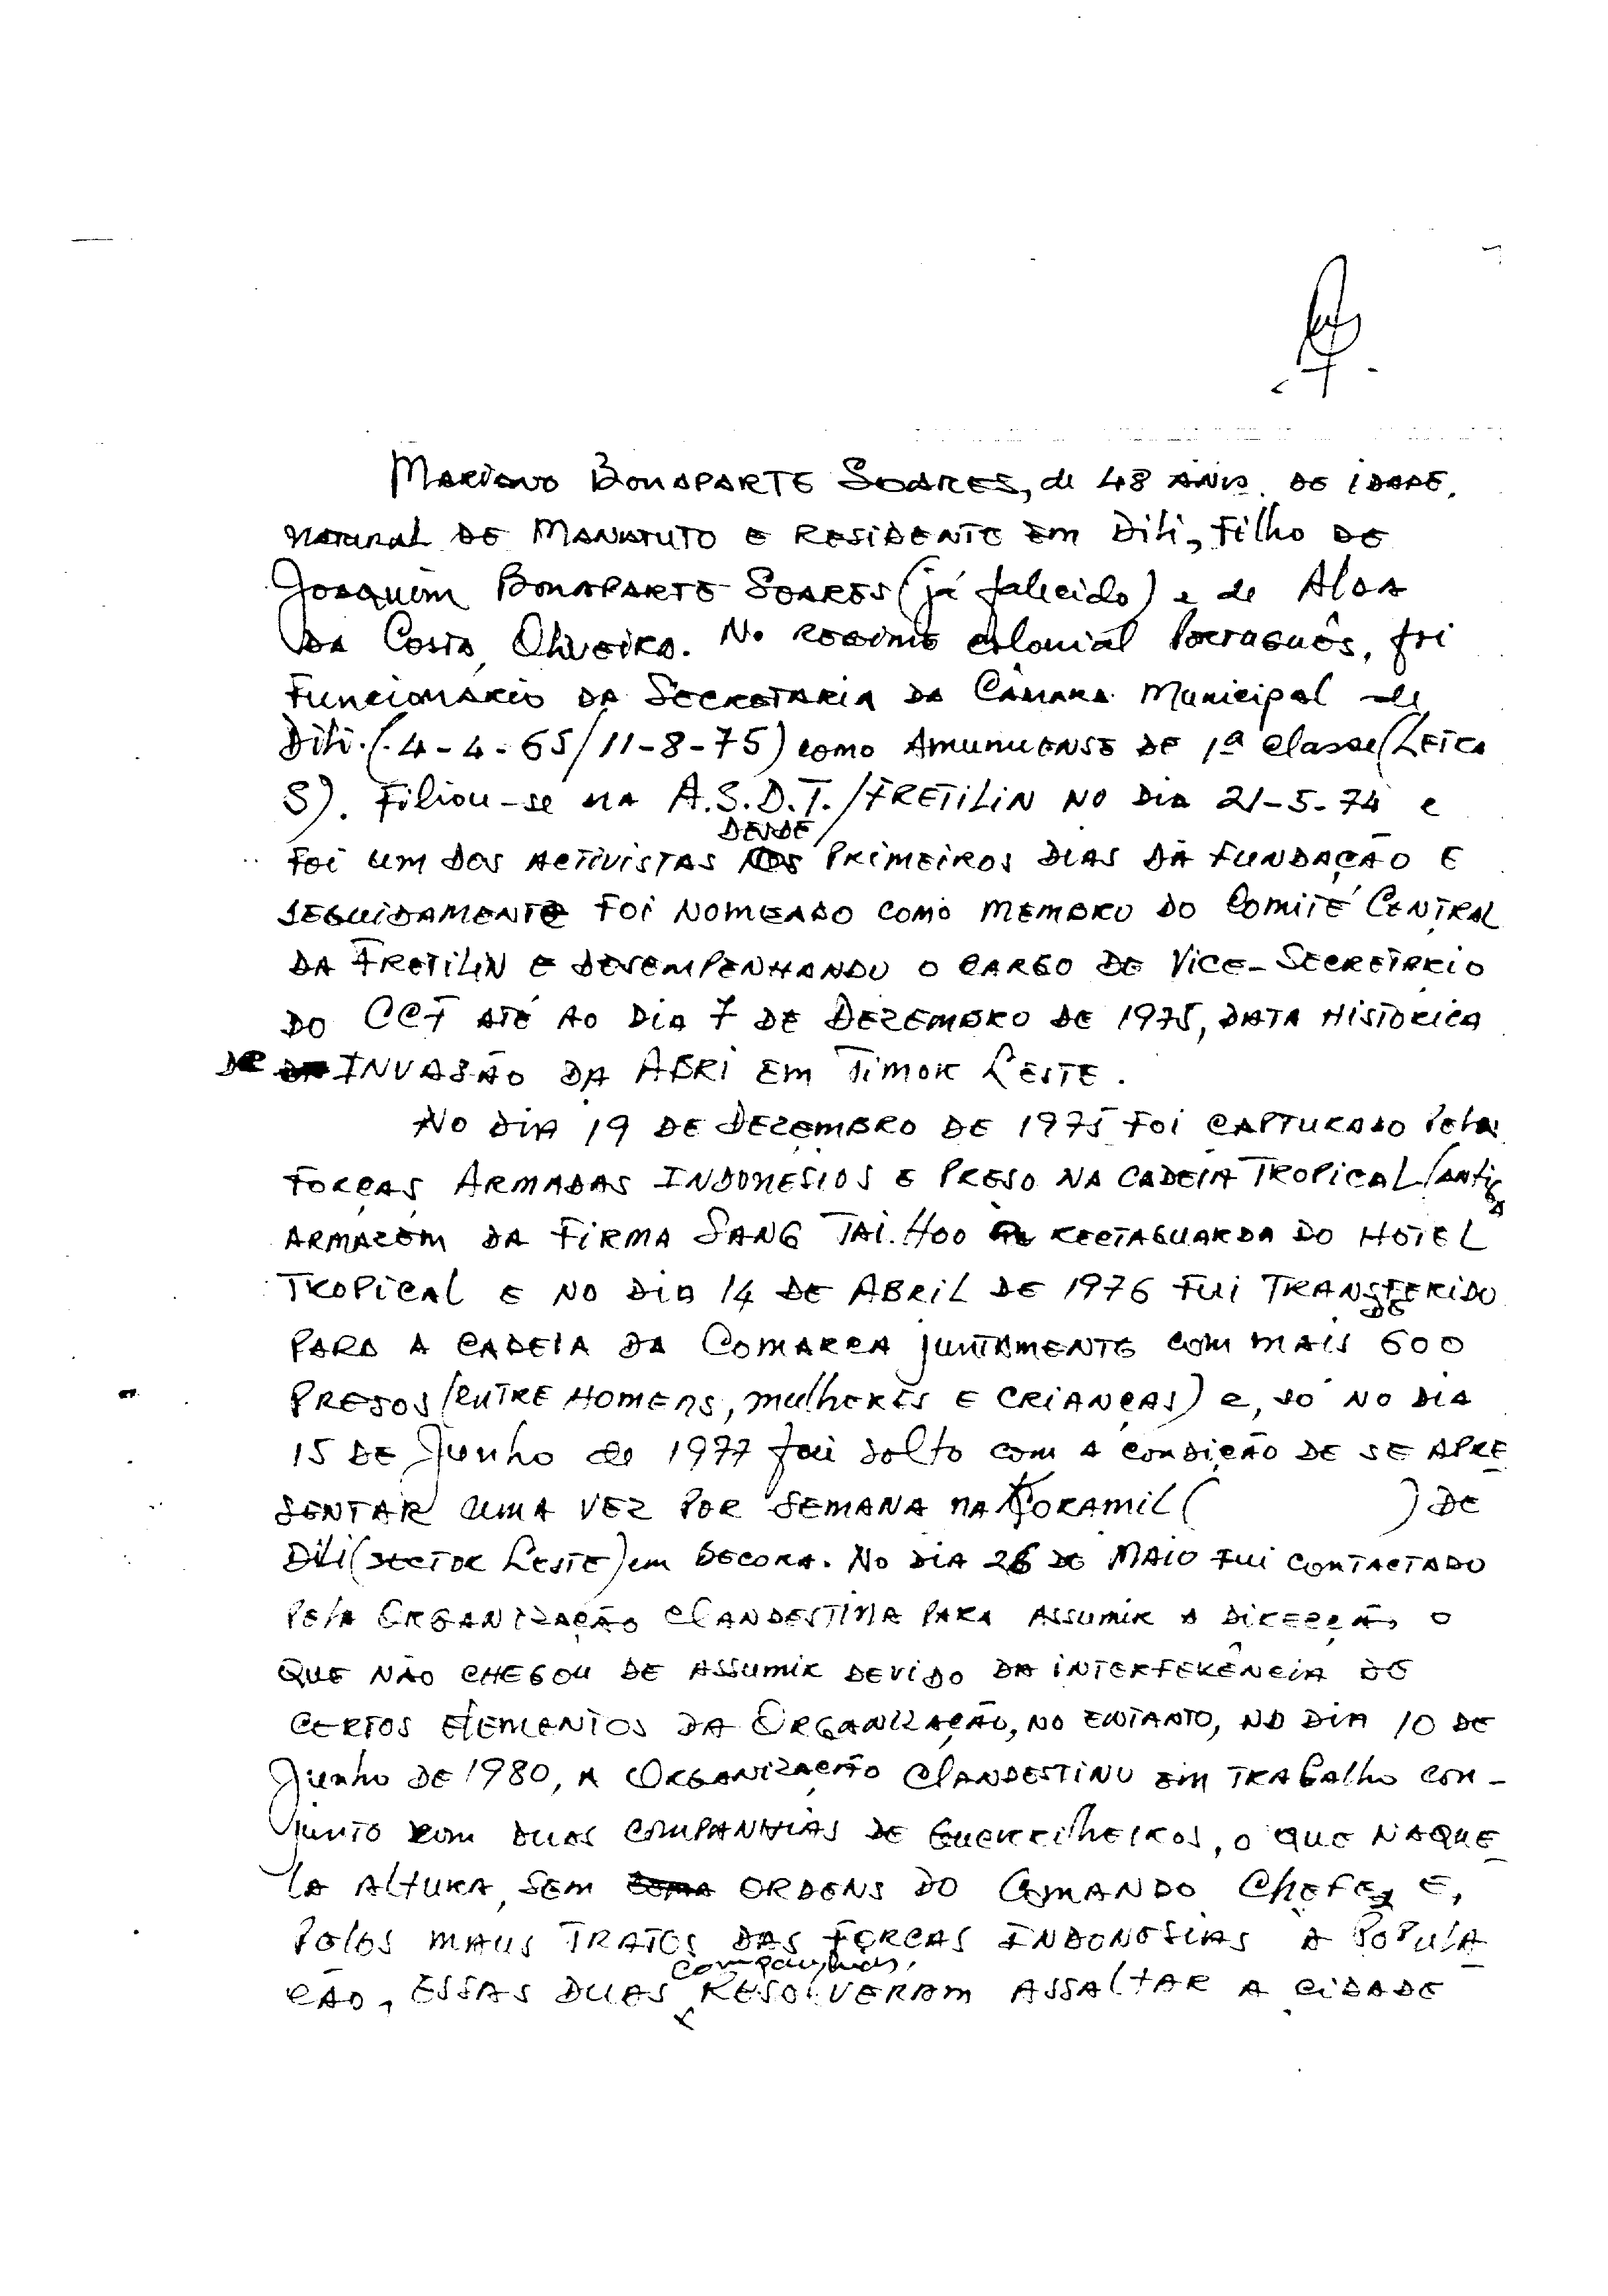 Mariano Bonaparte Soares, de 48 anos de idade,
natural de Manatuto e residente em Dili, filho de
Joaquim Bonaparte Soares (já falecido) e de Alda
da Costa Oliveira. No regime colonial Português, foi
funcionário da Secretaria da Câmara Municipal de
Dili (4-4-65/11-8-75) como Amunuense de 1ª classe (Letra
S). Filiou-se na A.S.D.T./FRETILIN no dia 21-5-74 e
foi um dos activistas desde primeiros dias da fundação e
seguidamente foi nomeado como membro do Comité Central
da Fretilin e desempenhando o cargo de Vice-Secretário
do CCF até ao dia 7 de Dezembro de 1975, data histórica
de invasão da ABRI em Timor Leste.
No dia 19 de Dezembro de 1975 foi capturado pelas
forças Armadas Indonésios e preso na cadeia Tropical (antiga
armazém da firma Sang Tai Hoo rectaguarda do Hotel
Tropical e no dia 14 de Abril de 1976 fui transferido
para a cadeia da Comarca juntamente com mais de 600
presos (entre homens, mulheres e crianças) e, só no dia
15 de Junho de 1977 foi solto com a condição de se apre
sentar uma vez por semana na Koramil ( ) de
Dili (sector Leste) em Becora. No dia 26 de Maio fui contactado
pela Organização clandestina para assumir a direcção, o
que não chegou de assumir devido da interferência de
certos elementos da Organização, no entanto, no dia 10 de
Junho de 1980, a Organização clandestina em trabalho con-
junto com duas companhias de guerrilheiros, o que naque
la altura, sem ordens do Comando Chefe, e,
pelos maus tratos das forças Indonésias à popula
ção, essas duas companhias resolveram assaltar a cidade